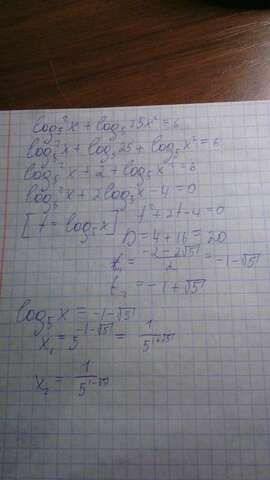 log₅²x + log₅25x² = 6
log₅²x + log₅25 + log₅x² = 6
log₅²x + 2 + log₅x² = 6
log₅²x + 2log₅x - 4 = 0
[t = log₅x] t² + 2t - 4 = 0
D = 4 + 16 = 20
t₁ = (-2 - 2√5)/2 = -1 - √5
t₂ = -1 + √5
log₅x = -1 - √5
x₁ = 5^(-1-√5) = 1/5^(1+√5)
x₂ = 1/5^(1-√5)